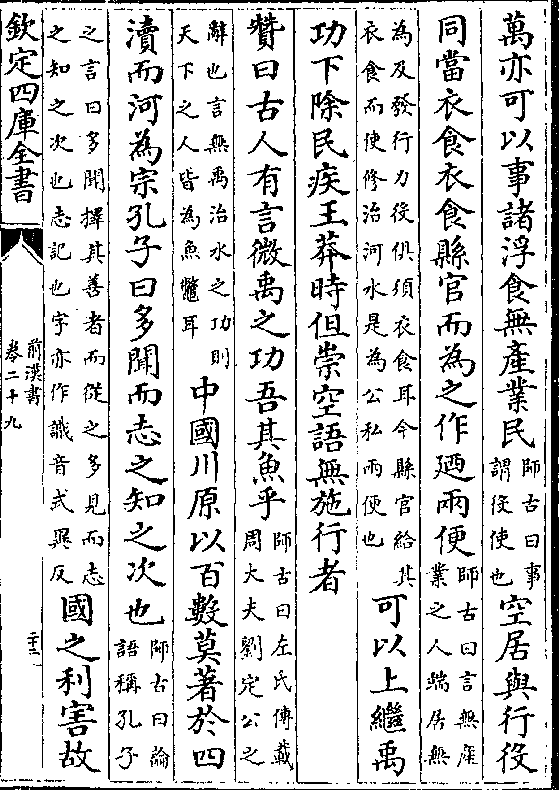 萬亦可以事諸浮食無產業民師古曰事謂役使也空居與行役
同當衣食衣食縣官而為之作廼兩便師古曰言無產業之人端居無
為及發行力役俱須衣食耳今縣官給其衣食而使修治河水是為公私兩便也可以上繼禹
功下除民疾王莽時但崇空語無施行者
贊曰古人有言微禹之功吾其魚乎師古曰左氏傳載周大夫劉定公之
辭也言無禹治水之功則天下之人皆為魚鼈耳中國川原以百數莫著於四
瀆而河為宗孔子曰多聞而志之知之次也師古曰論語稱孔子
之言曰多聞擇其善者而從之多見而志之知之次也志記也字亦作識音式異反國之利害故
欽定四庫全書
前漢書
卷二十九
二十三